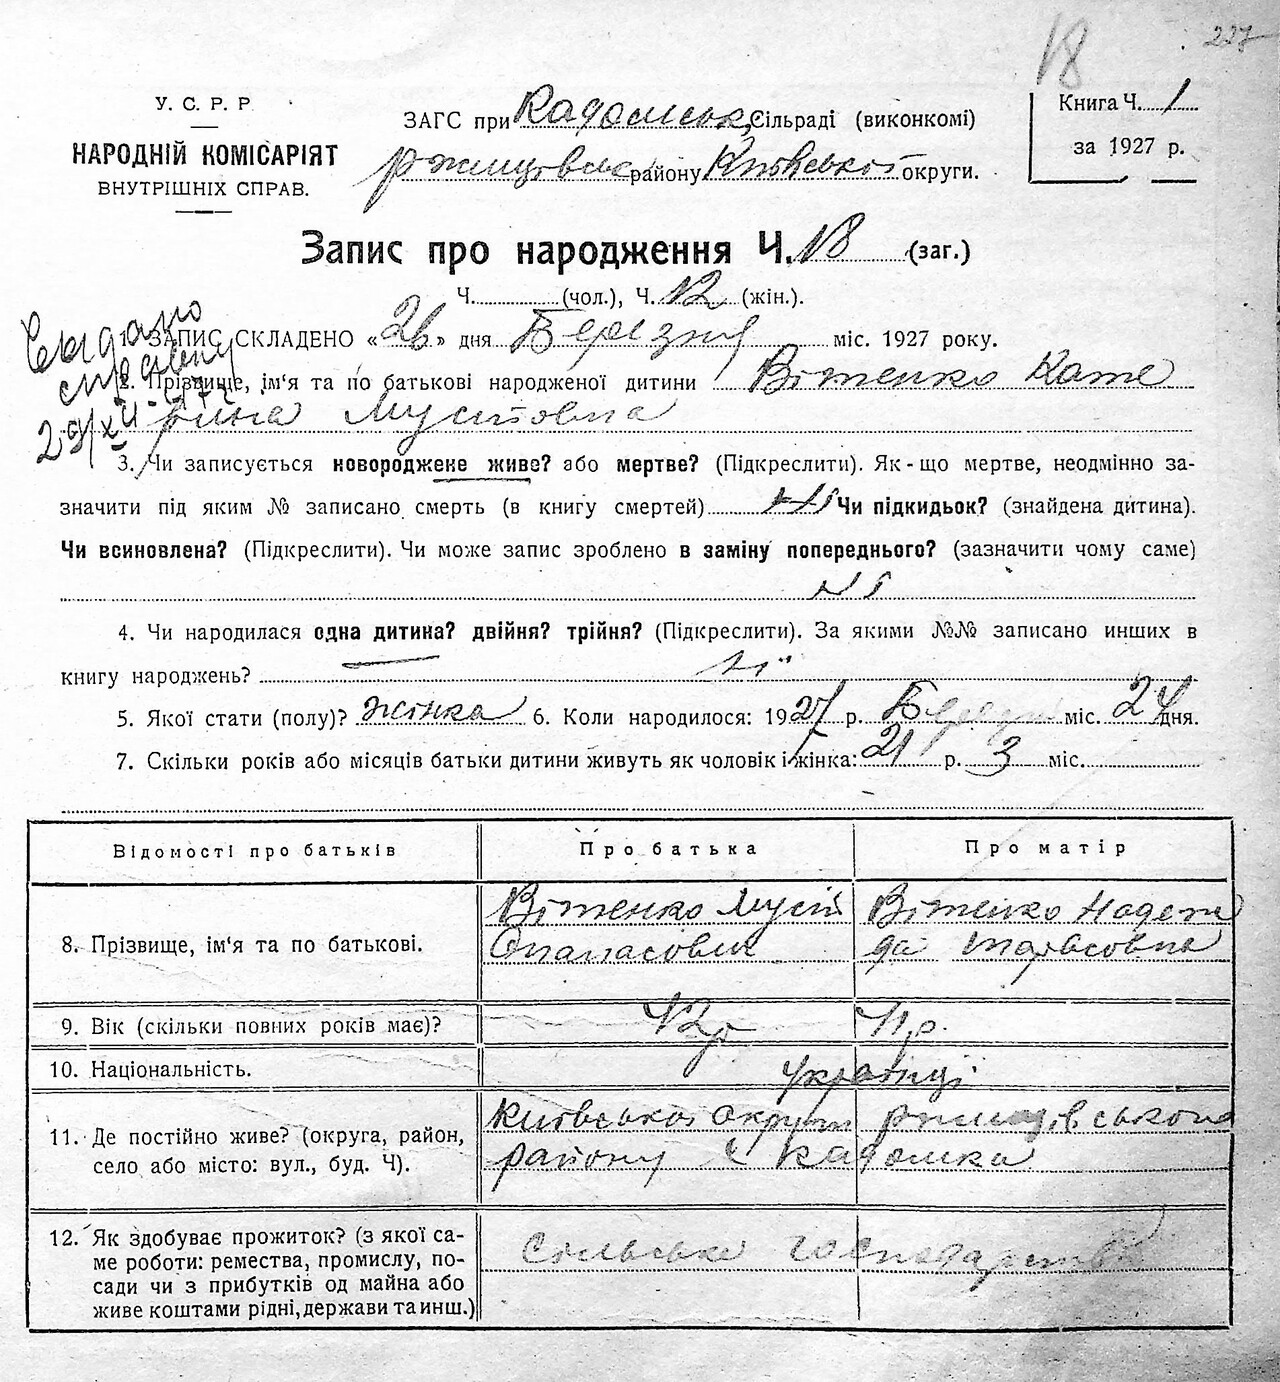 18
227
У. С. Р. Р
НАРОДНІЙ КОМІСАРІЯТ
ВНУТРІШНІХ СПРАВ.
ЗАГС при Кадомськ. Сільраді (виконкомі)
Ржищевськ району Київської округи.
Книга Ч. 1
за 1927 р.
Запис про народження Ч. 18 (заг.)
Ч. (чол.), Ч. 12 (жін.).
Видано
1. ЗАПИС СКЛАДЕНО « 26 » дня Березня міс. 1927 року.
2. Прізвище, ім'я та по батькові народженої дитини Вітенко Кате
рина Мусіївна
3. Чи записується новороджене живе? або мертве? (Підкреслити). Як-що мертве, неодмінно за-
значити під яким № записано смерть (в книгу смертей) Ні Чи підкидьок? (знайдена дитина).
Чи всиновлена? (Підкреслити). Чи може запис зроблено в заміну попереднього? (зазначити чому саме)
Ні
4. Чи народилася одна дитина? двійня? трійня? (Підкреслити). За якими №№ записано инших в
книгу народжень? Ні
5. Якої стати (полу)? жінка 6. Коли народилося: 1927 р. Березня міс. 24 дня.
7. Скільки років або місяців батьки дитини живуть як чоловік і жінка: 21 р. 3 міс.
Відомості про батьків
Про батька
Про матір
8. Прізвище, ім'я та по батькові.
Вітенко Мусій
Опанасович
Вітенко Надеж
да Тарасовна
9. Вік (скільки повних років має)?
42 р
41 р.
10. Національність.
Українці
11. Де постійно живе? (округа, район,
село або місто: вул., буд. Ч).
Київської округи Ржищівського
району с Кадомка
12. Як здобуває прожиток? (з якої са-
ме роботи: ремества, промислу, по-
сади чи з прибутків од майна або
живе коштами рідні, держави та инш.)
Сільське господарство